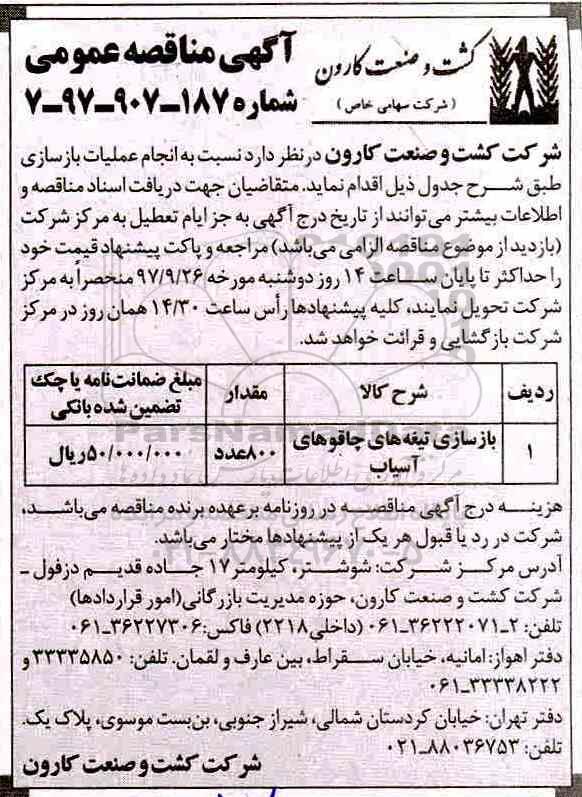 کشت و صنعت کارون
( شرکت سهامی خاص )
آگهی مناقصه عمومی
شماره ۱۸۷-۹۰۷-۹۷-۷
شرکت کشت و صنعت کارون در نظر دارد نسبت به انجام عملیات بازسازی
طبق شـــرح جدول ذیل اقدام نماید. متقاضیان جهت دریافت اسناد مناقصه و
اطلاعات بیشتر می‌توانند از تاریخ درج آگهی به جز ایام تعطیل به مرکز شرکت
(بازدید از موضوع مناقصه الزامی می‌باشد) مراجعه و پاکت پیشنهاد قیمت خود
را حداکثر تا پایان ســـاعت ۱۴ روز دوشنبه مورخه ۹۷/۹/۲۶ منحصراً به مرکز
شرکت تحویل نمایند، کلیه پیشنهادها رأس ساعت ۱۴/۳۰ همان روز در مرکز
شرکت بازگشایی و قرائت خواهد شد.
ردیف شرح کالا مقدار مبلغ ضمانت‌نامه یا چک تضمین شده بانکی
۱ بازسازی تیغه‌های چاقوهای آسیاب ۸۰۰عدد ۵۰/۰۰۰/۰۰۰ریال
ParsNamadData
هزینـــه درج آگهی مناقصـــه در روزنامه برعهده برنده مناقصه می‌باشـــد،
شرکت در رد یا قبول هر یک از پیشنهادها مختار می‌باشد.
آدرس مرکـــز شـــرکت: شوشتـر، کیلومتر ۱۷ جـــاده قدیـــم دزفول -
شرکت کشت و صنعت کارون، حوزه مدیریت بازرگانی(امور قراردادها)
تلفن: ۲-۳۶۲۲۲۰۷۱-۰۶۱ (داخلی۲۲۱۸) فاکس:۳۶۲۲۷۳۰۶-۰۶۱
دفتر اهواز: امانیه، خیابان ســـقراط، بین عارف و لقمان. تلفن: ۳۳۳۳۵۸۵۰ و
۳۳۳۳۸۲۲۲-۰۶۱
دفتر تهران: خیابان کردستان شمالی، شیراز جنوبی، بن‌بست موسوی، پلاک یک.
تلفن: ۸۸۰۳۶۷۵۳-۰۲۱
شرکت کشت و صنعت کارون